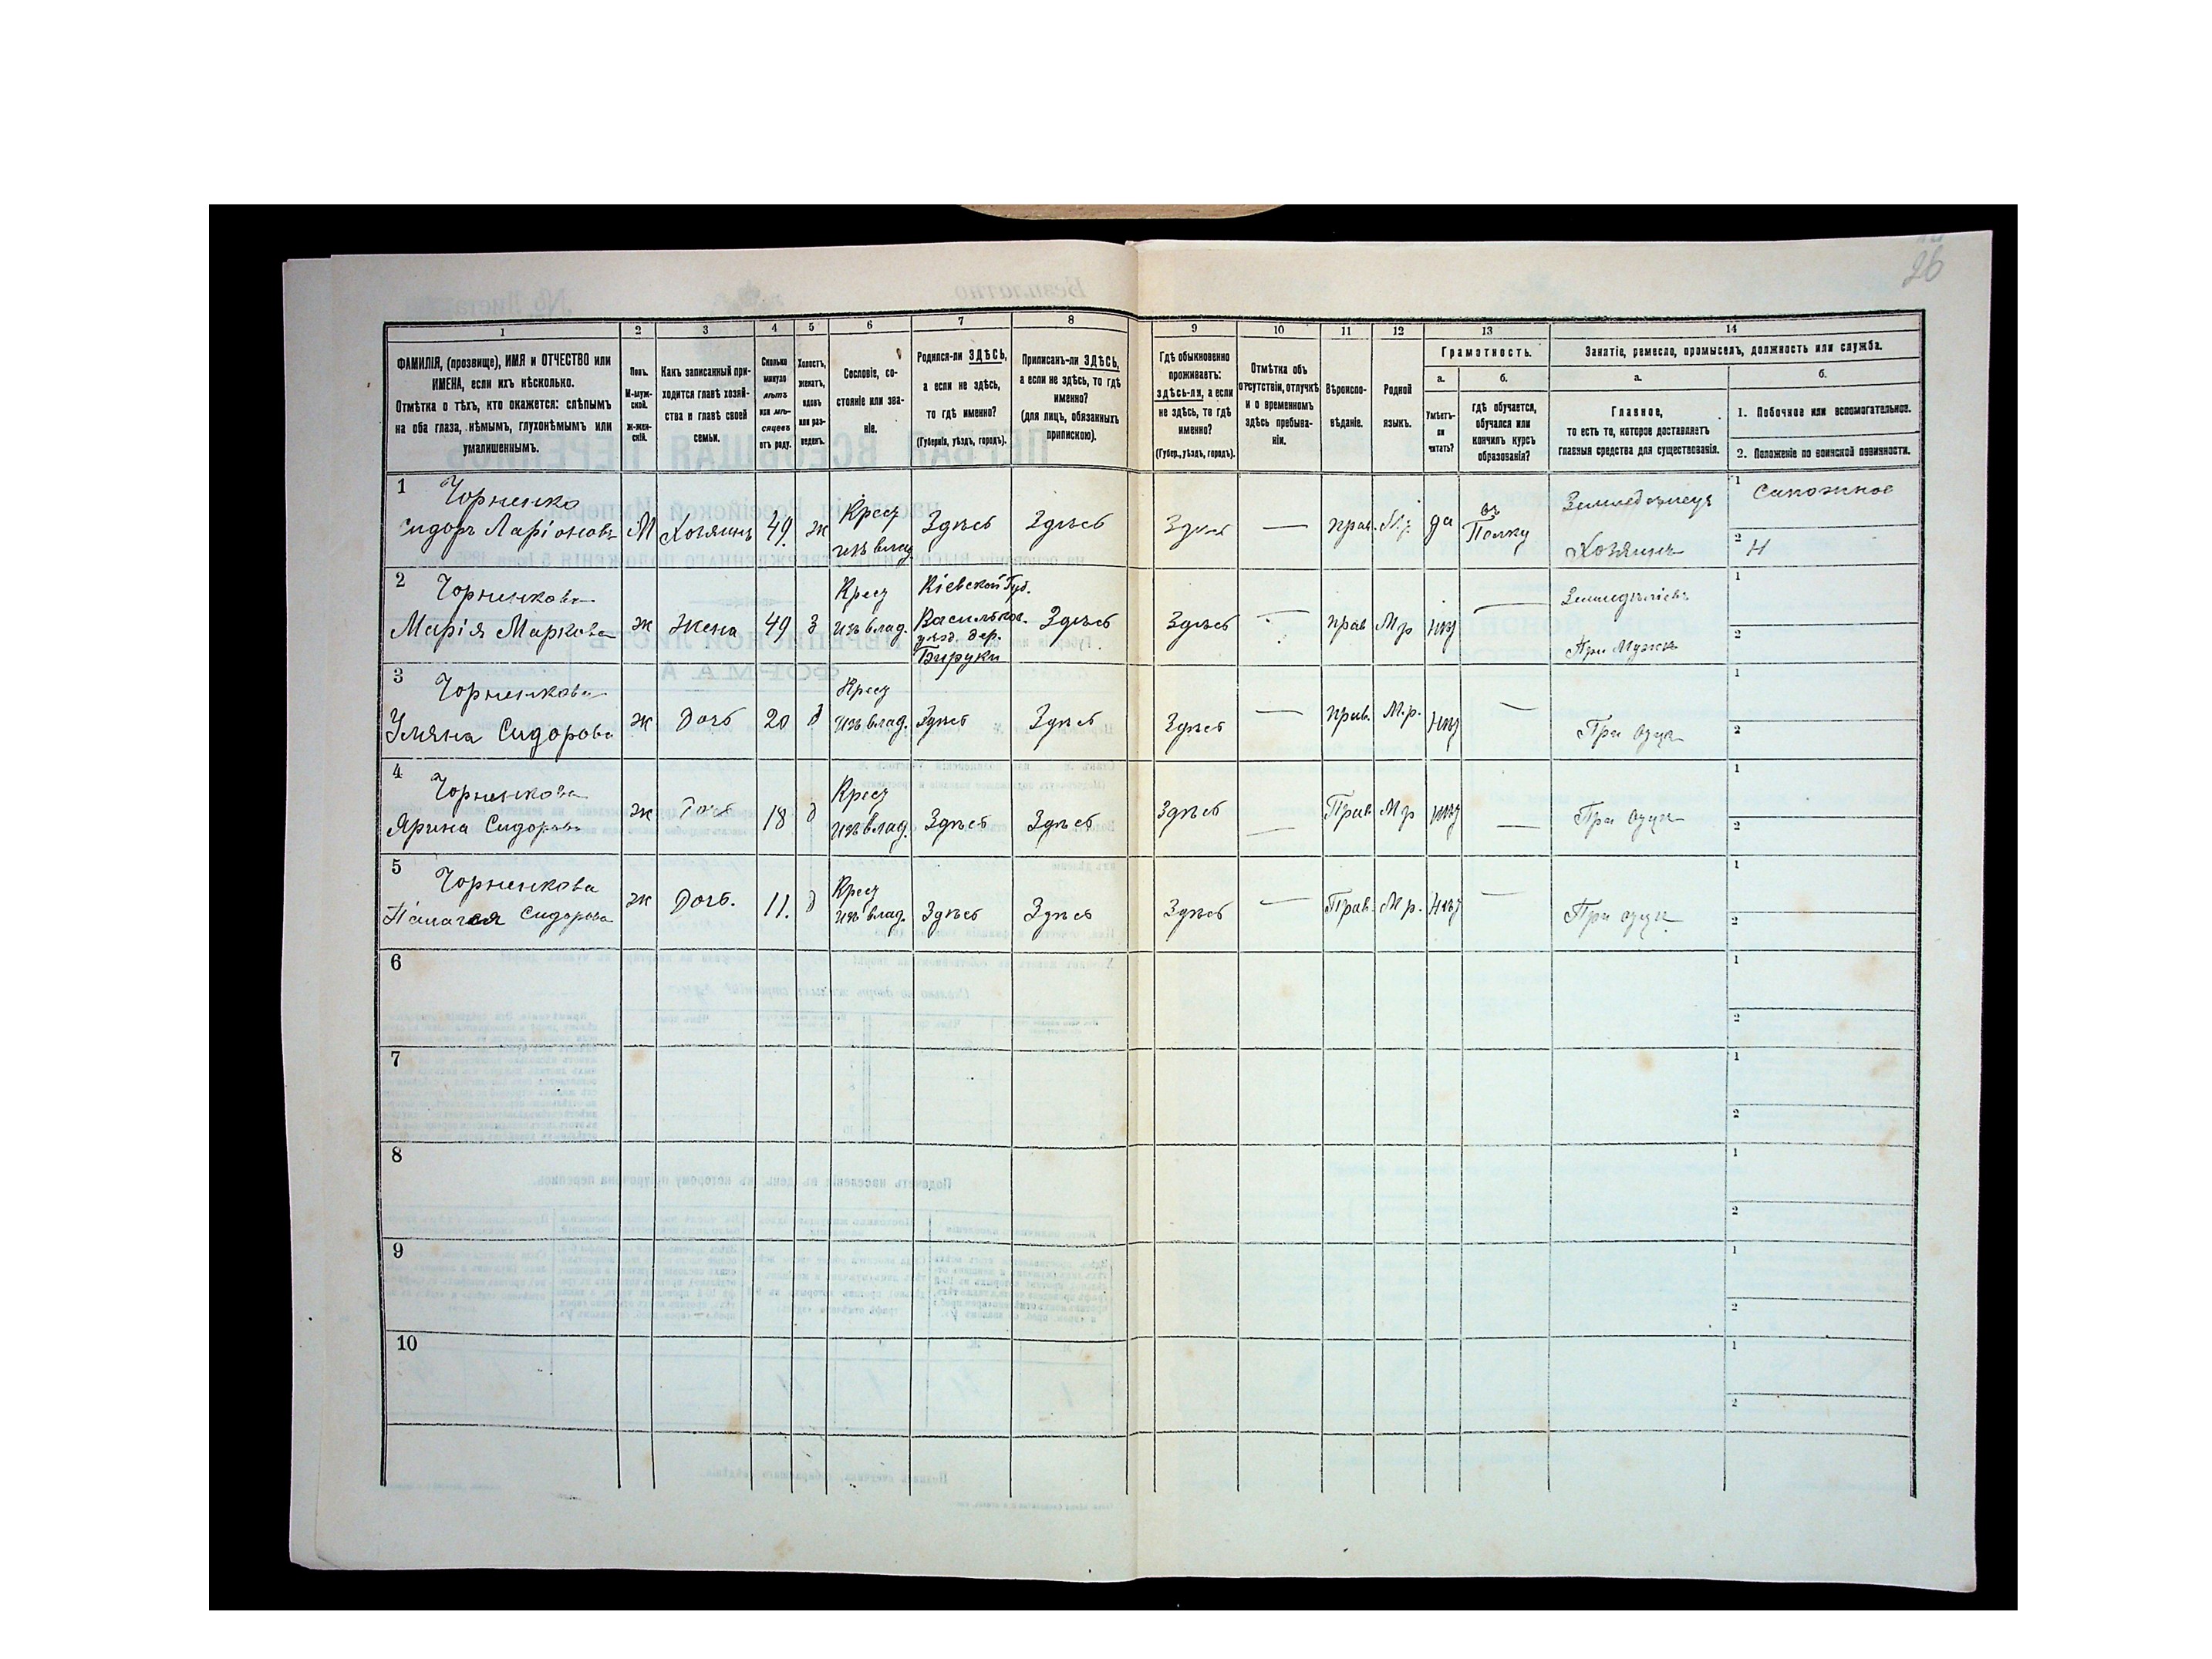 26
1
2
3
4
5
6
7
8
9
10
11
12
13
14
ФАМИЛІЯ, (прозвище), ИМЯ и ОТЧЕСТВО или
ИМЕНА, если ихъ нѣсколько.
Отмѣтка о тѣхъ, кто окажется: слѣпымъ
на оба глаза, нѣмымъ, глухонѣмымъ или
умалишеннымъ.
Полъ.
М-муж-
ской.
ж-жен-
скій.
Какъ записанный при-
ходится главѣ хозяй-
ства и главѣ своей
семьи.
Сколько
минуло
лѣтъ
или мѣ-
сяцевъ
отъ роду.
Холостъ,
женатъ,
вдовъ
или раз-
веденъ.
Сословіе, со-
стояніе или зва-
ніе.
Родился-ли ЗДѢСЬ,
а если не здѣсь,
то гдѣ именно?
(Губернія, уѣздъ, городъ).
Приписанъ-ли ЗДѢСЬ,
а если не здѣсь, то гдѣ
именно?
(для лицъ, обязанныхъ
припискою).
Гдѣ обыкновенно
проживаетъ:
здѣсь-ли, а если
не здѣсь, то гдѣ
именно?
(Губер., уѣздъ, городъ).
Отмѣтка объ
отсутствіи, отлучкѣ
и о временномъ
здѣсь пребыва-
ніи.
Вѣроиспо-
вѣданіе.
Родной
языкъ.
Грамотность.
а.
б.
Умѣетъ-
ли
читать?
гдѣ обучается,
обучался или
кончилъ курсъ
образованія?
Занятіе, ремесло, промыселъ, должность или служба.
а.
б.
Главное,
то есть то, которое доставляетъ
главныя средства для существованія.
1. Побочное или вспомогательное.
2. Положеніе по воинской повинности.
1 Чорненко
Сидоръ Ларіоновъ М Хозяинъ 49. ж Крест изъ влад. Здѣсь Здѣсь Здѣсь — прав. М.р. да въ Полку
Земледѣлецъ
Хозяинъ
1 Сапожное
2 Н
2 Чорненкова
Марія Маркова ж Жена 49 З Крест изъ влад.
Кіевской Губ.
Васильков.
уѣзд. дер.
Бируки
Здѣсь Здѣсь — прав Мр нѣт —
Земледѣліемъ
При Мужѣ
1
2
3 Чорненкова
Уляна Сидорова ж Дочь 20 д Крест изъ влад. Здѣсь Здѣсь Здѣсь — прав. М.р. нѣт — При отцѣ
1
2
4 Чорненкова
Ярина Сидорова ж Дочь 18 д Крест изъ влад. Здѣсь Здѣсь Здѣсь — Прав Мр нѣт — При отцѣ
1
2
5 Чорненкова
Палагея Сидорова ж Дочь. 11. д Крест изъ влад. Здѣсь Здѣсь Здѣсь — Прав. Мр. нѣт — При отцѣ
1
2
6
1
2
7
1
2
8
1
2
9
1
2
10
1
2